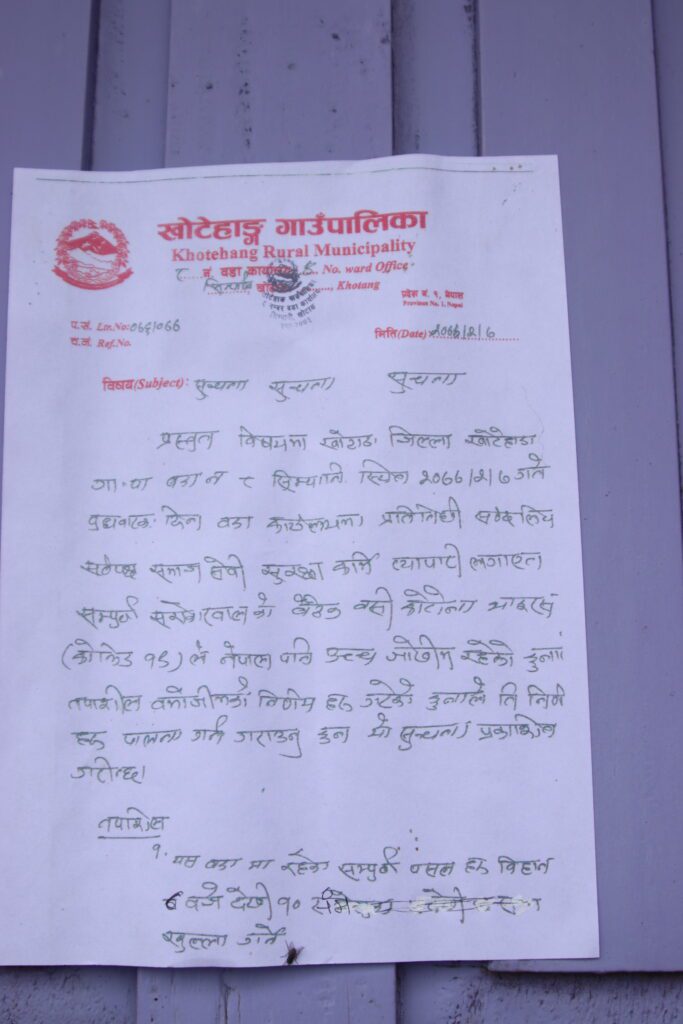 खोटेहाङ्ग गाउँपालिका
Khotehang Rural Municipality
८ नं. वडा कार्यालय ८ No. ward Office
Khotang
प्रदेश नं. १, नेपाल
Province No. 1, Nepal
प.सं. Ltr.No:
च.नं. Ref.No.
मिति(Date) २०७७/२/७
विषय(Subject): सुचना सुचना सुचना
प्रस्तुत विषयमा खोटाङ जिल्ला खोटेहाङ
गा.पा वडा न ८ स्थित २०७७/२/७ गते
दिन वडा कार्यालयमा प्रतिनिधी
समाज सेवी सुरक्षा कर्मि व्यापारी लगाएत
सम्पुर्ण सरोकारवालाको बैठक बसी कोरोना भाइरस
(कोभिड १९) ले नेपाल पनि उच्च जोखीम रहेको हुना
तपाशील बमोजीमको निर्णय हरु गरेको हुनाले ति निर्ण
हरु पालना गर्न गराउनु हुन यो सुचना प्रकाशित
गरीन्छ।
तपाशिल
१. यस वडा मा रहेका सम्पुर्ण पसल हरु विहान
६ बजे देखी १०
खुल्ला गर्ने